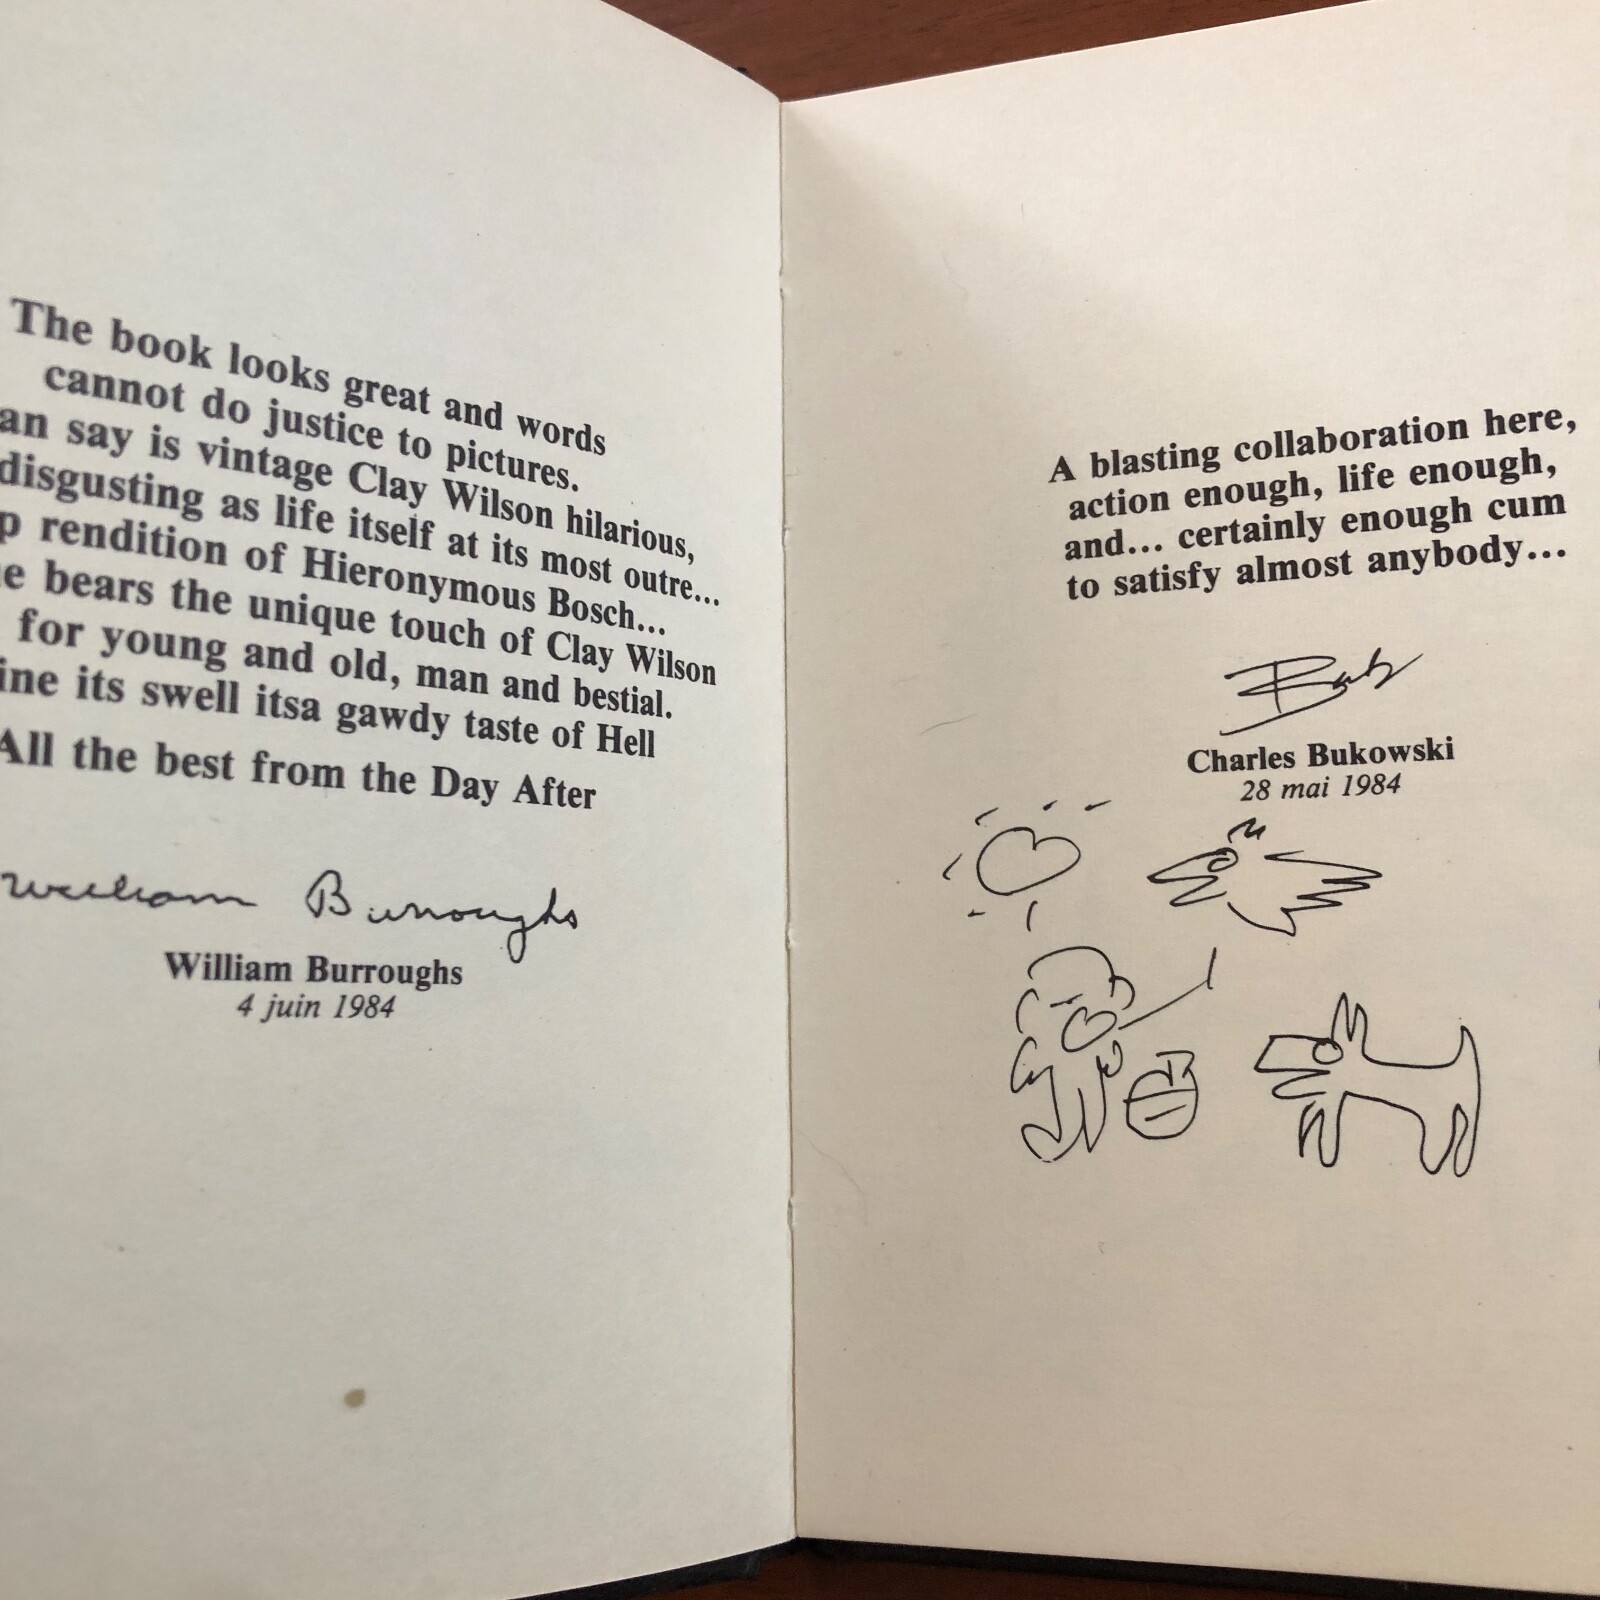 The book looks great and words
cannot do justice to pictures.
an say is vintage Clay Wilson hilarious,
disgusting as life itself at its most outre...
p rendition of Hieronymous Bosch...
e bears the unique touch of Clay Wilson
for young and old, man and bestial.
ine its swell itsa gawdy taste of Hell
All the best from the Day After
William Burroughs
William Burroughs
4 juin 1984
A blasting collaboration here,
action enough, life enough,
and... certainly enough cum
to satisfy almost anybody...
Buk
Charles Bukowski
28 mai 1984